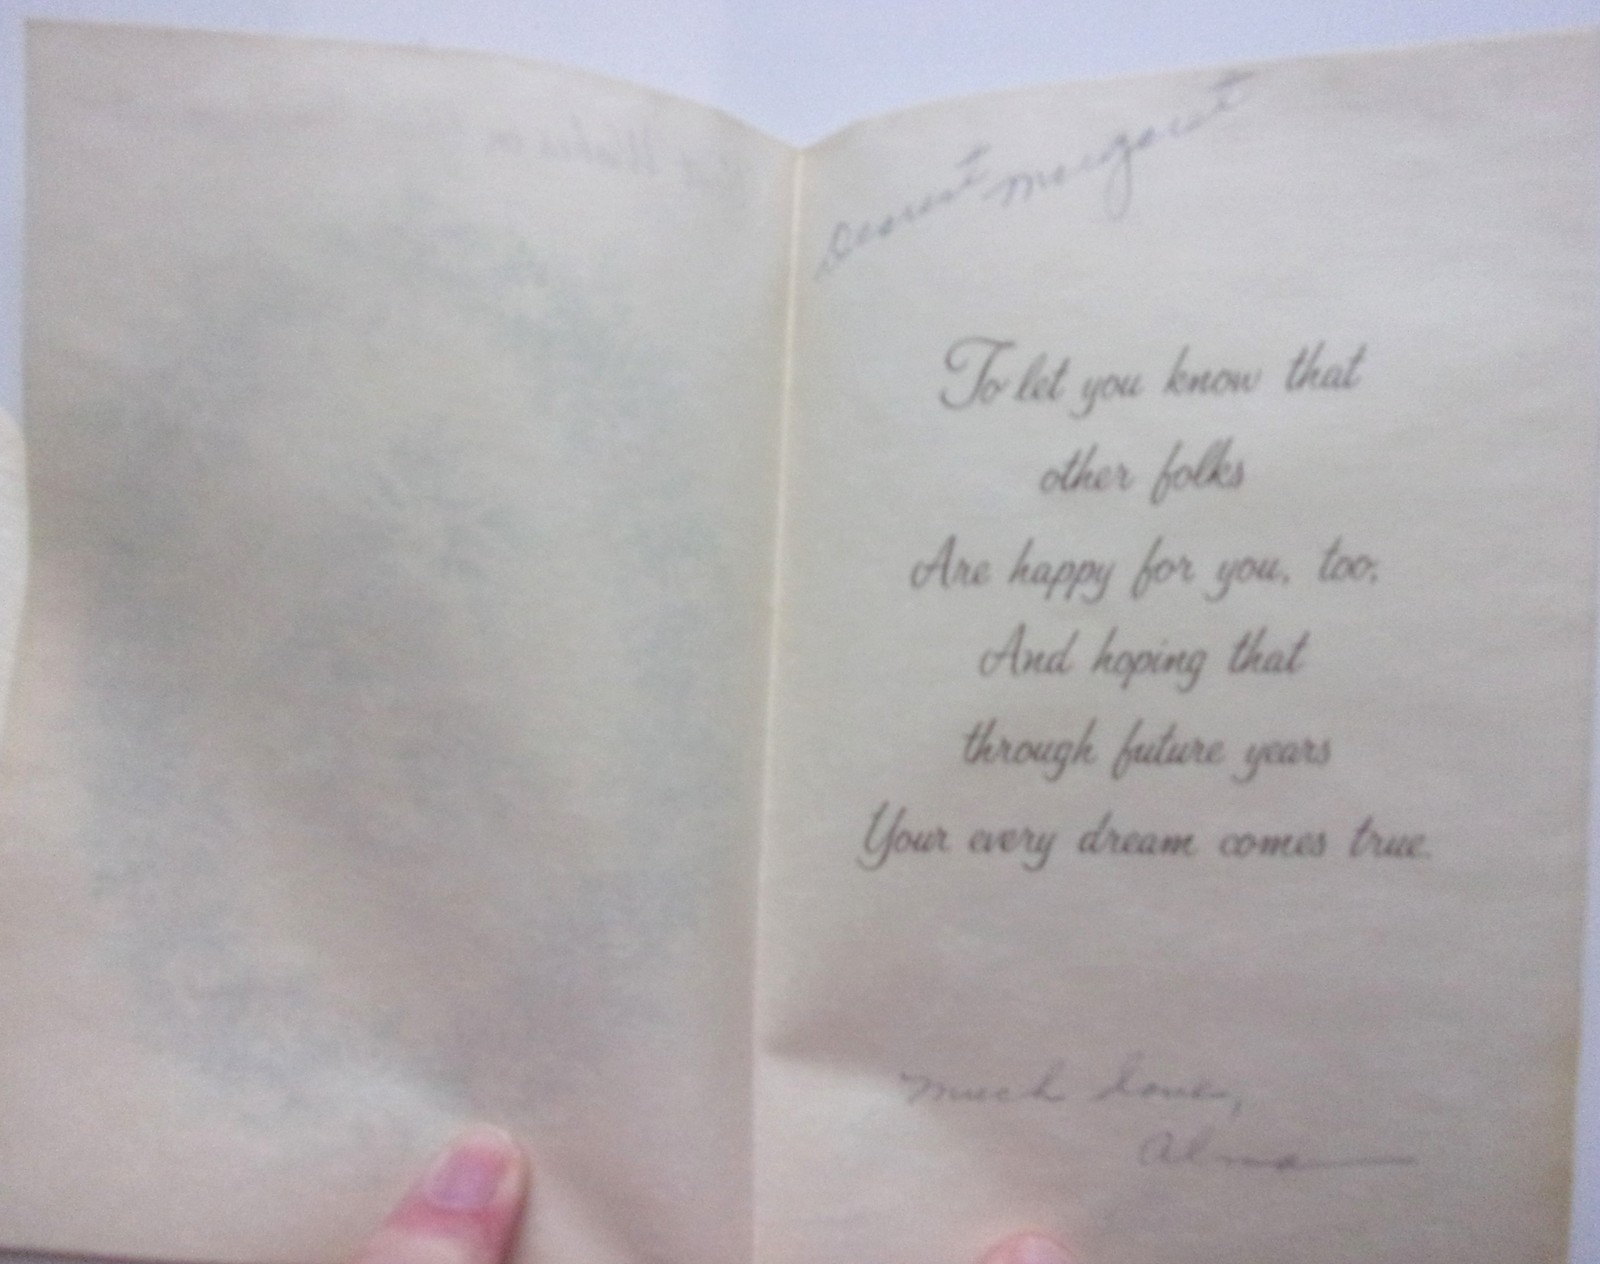 Wishes on
Dearest Margaret
To let you know that
other folks
Are happy for you, too;
And hoping that
through future years
Your every dream comes true.
Much love,
Alma